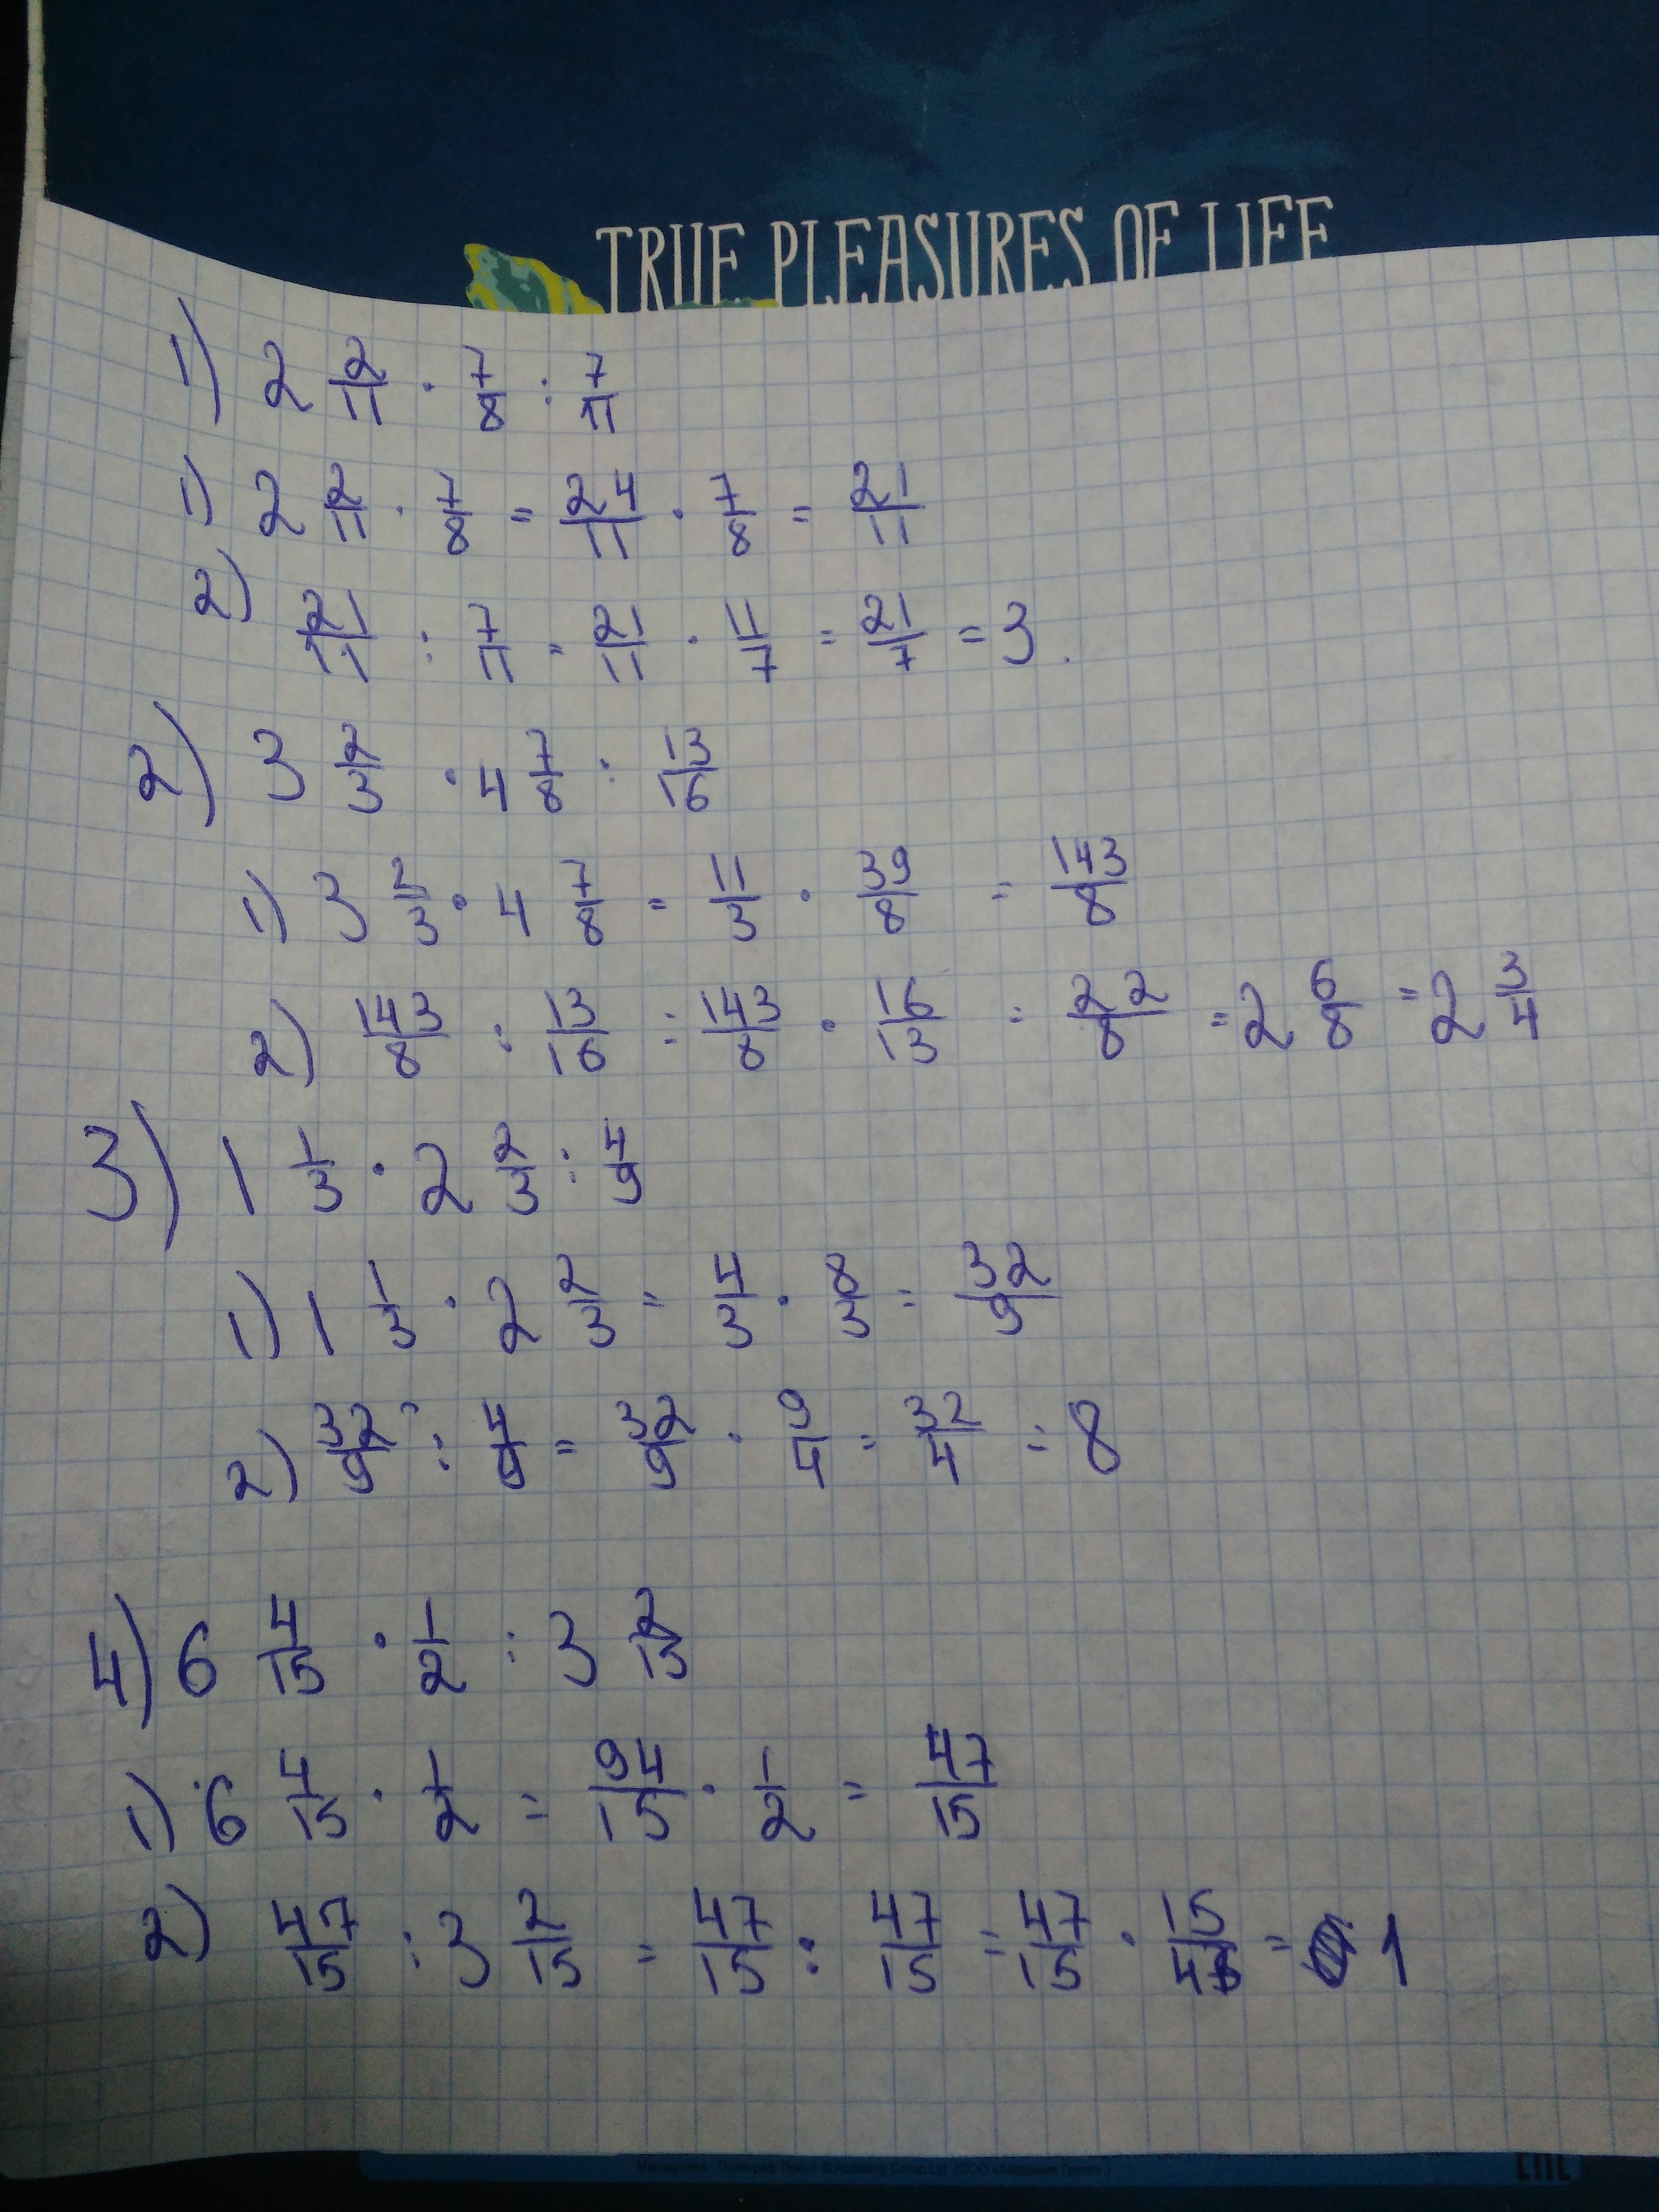 TRUE PLEASURES OF LIFE
1) 2 2/11 · 7/8 : 7/11
1) 2 2/11 · 7/8 = 24/11 · 7/8 = 21/11
2) 21/11 : 7/11 = 21/11 · 11/7 = 21/7 = 3.
2) 3 2/3 · 4 7/8 : 13/16
1) 3 2/3 · 4 7/8 = 11/3 · 39/8 = 143/8
2) 143/8 : 13/16 = 143/8 · 16/13 = 22/8 = 2 6/8 = 2 3/4
3) 1 1/3 · 2 2/3 : 4/9
1) 1 1/3 · 2 2/3 = 4/3 · 8/3 = 32/9
2) 32/9 : 4/9 = 32/9 · 9/4 = 32/4 = 8
4) 6 4/15 · 1/2 : 3 2/15
1) 6 4/15 · 1/2 = 94/15 · 1/2 = 47/15
2) 47/15 : 3 2/15 = 47/15 : 47/15 = 47/15 · 15/47 = 1